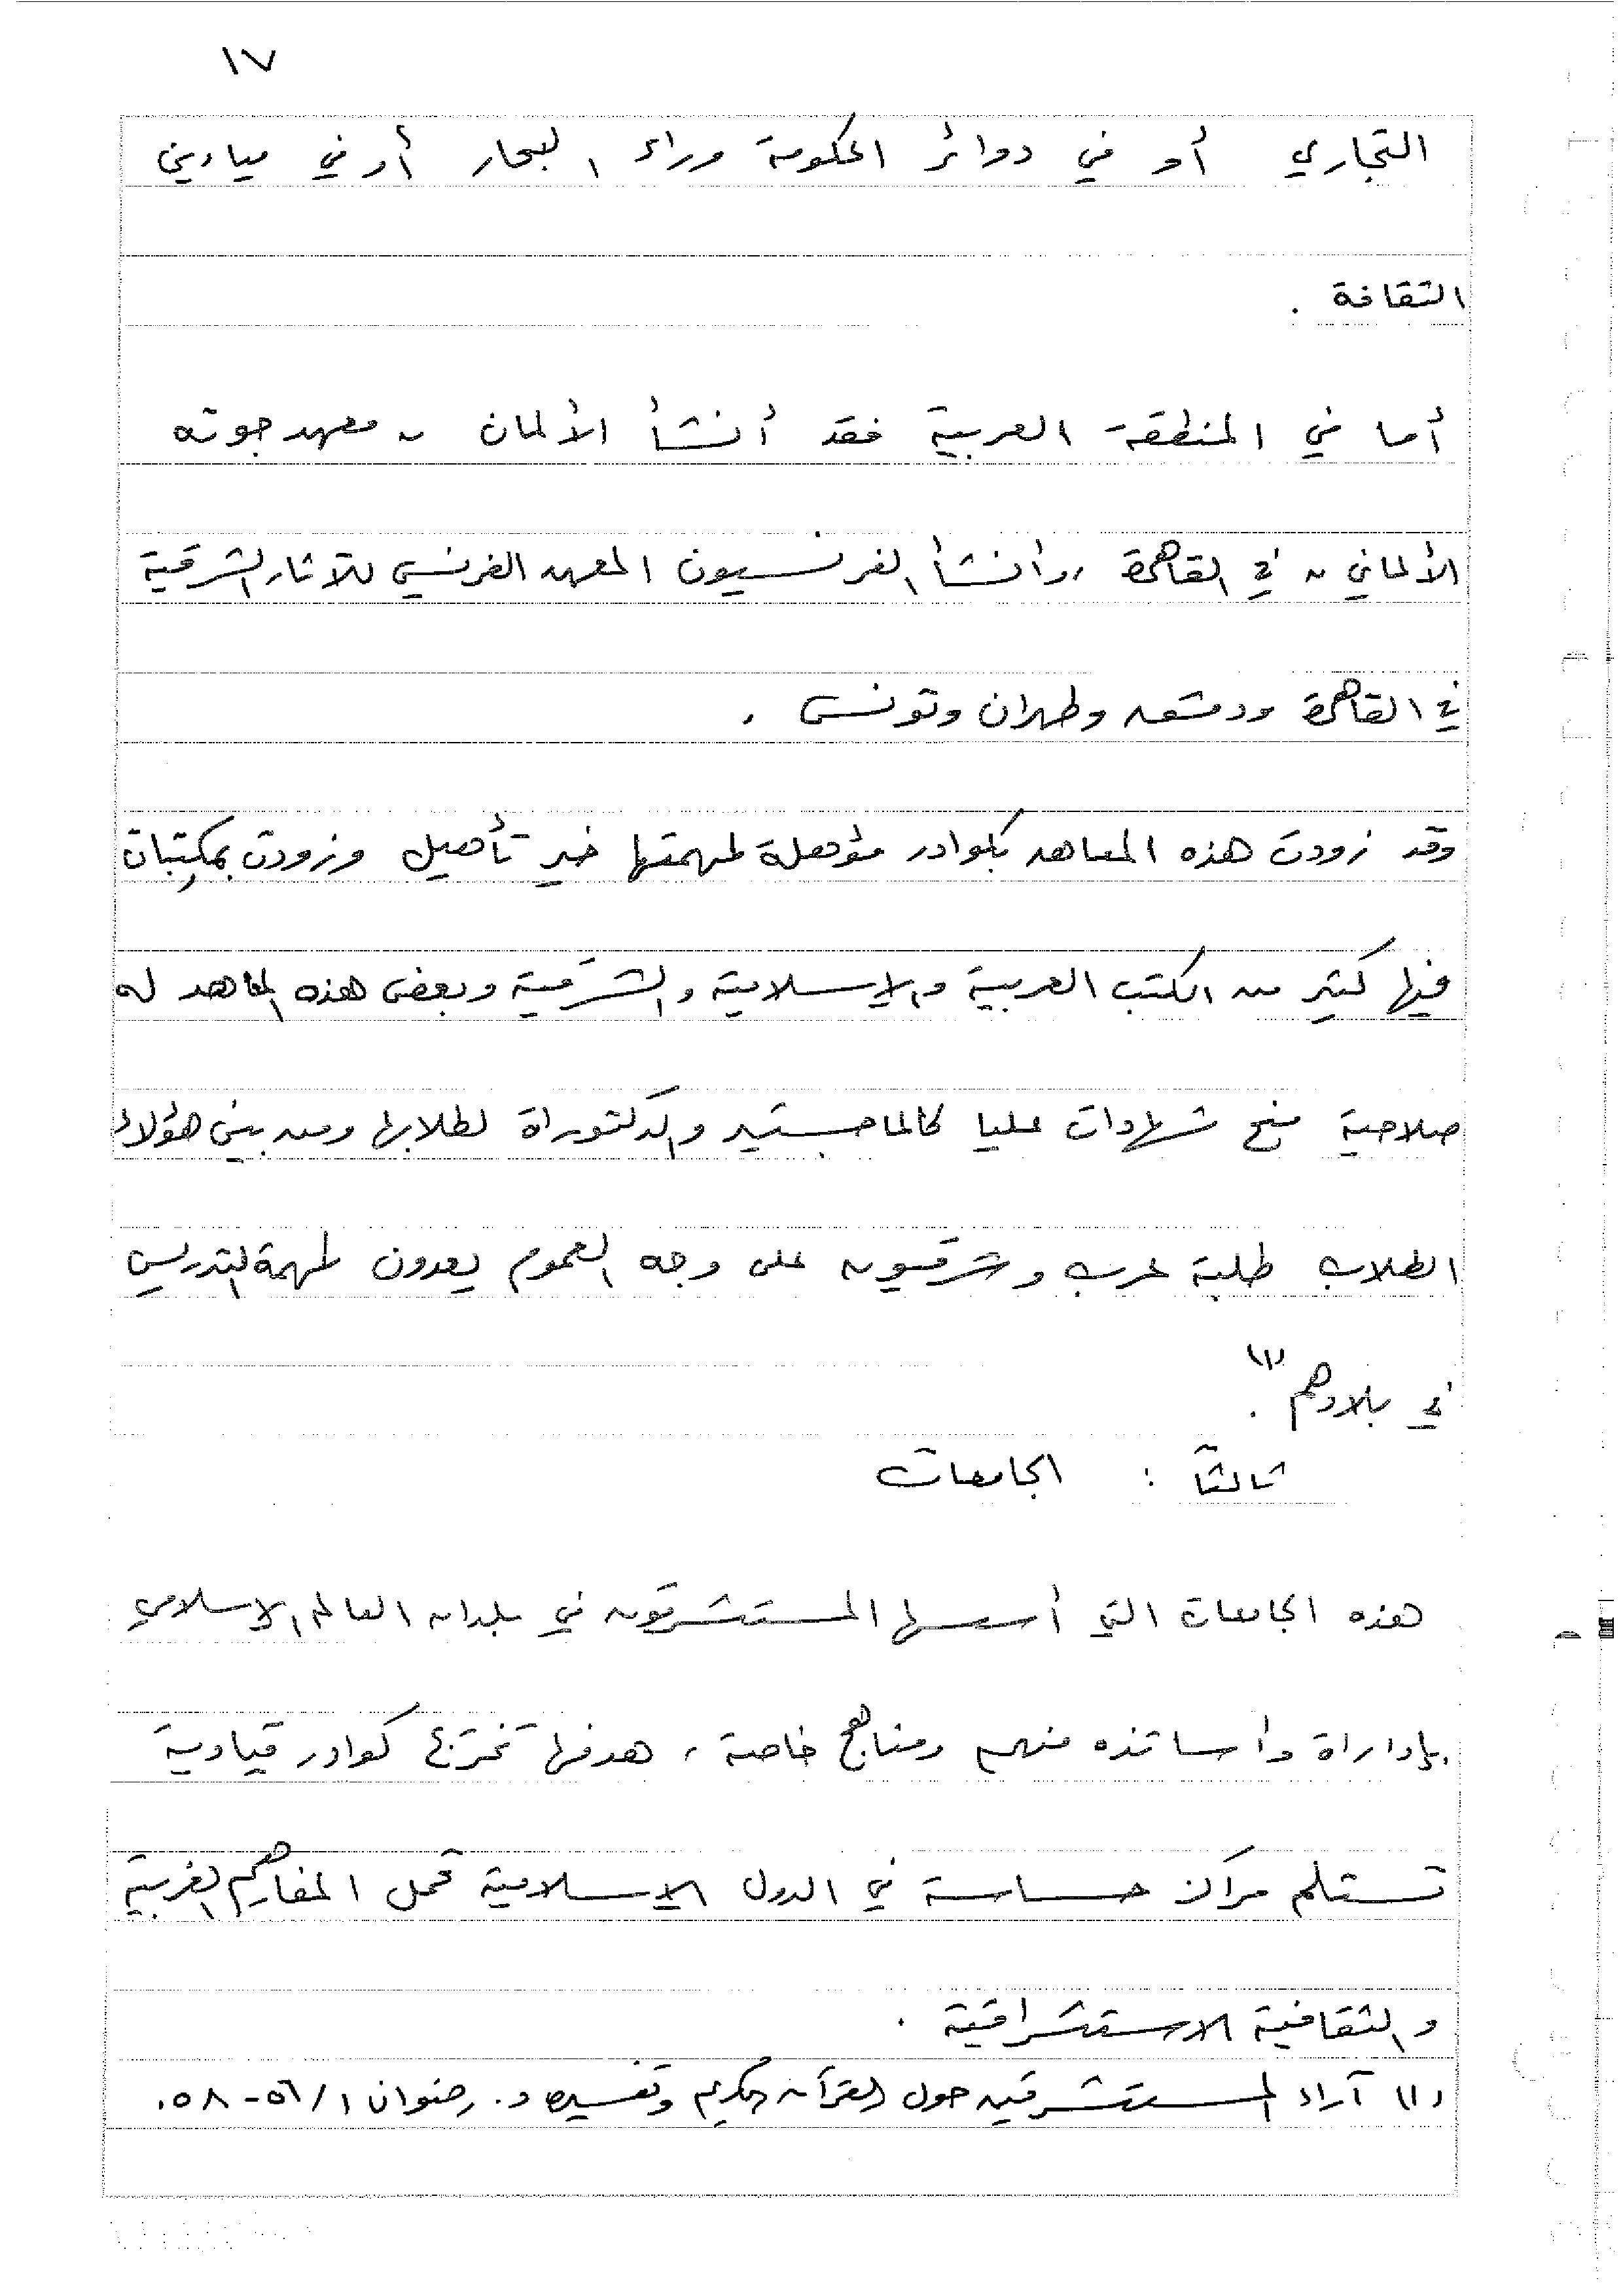 ١٧
التجاري أو في دوائر الحكومة وراء البحار أو في ميادين
الثقافة .
أما في المنطقة العربية فقد أنشأ الألمان " معهد جوته
الألماني " في القاهرة ، وأنشأ الفرنسيون المعهد الفرنسي للآثار الشرقية
في القاهرة ودمشق وطهران وتونس .
وقد زودت هذه المعاهد بكوادر مؤهلة لمهمتها خير تأهيل وزودت بمكتبات
فيها كثير من الكتب العربية والإسلامية والشرقية وبعض هذه المعاهد له
صلاحية منح شهادات عليا كالماجستير والدكتوراة لطلابها ومن بين هؤلاء
الطلاب طلبة عرب وشرقيون على وجه العموم يعدون لمهمة التدريس
في بلادهم (١) .
ثالثاً : الجامعات
هذه الجامعات التي أسسها المستشرقون في بلدان العالم الإسلامي
بإداراة وأساتذه منهم ومناهج خاصة ، هدفها تخريج كوادر قيادية
تستلم مراكز حساسة في الدول الإسلامية تحمل المفاهيم الغربية
والثقافية الاستشراقية .
(١) آراء المستشرقين حول القرآن الكريم وتفسيره د. رضوان ١/٥٦-٥٨.